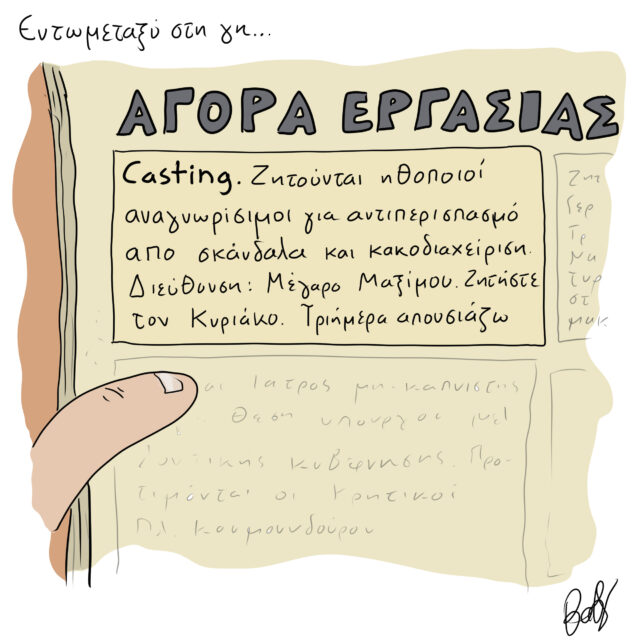 Εντωμεταξύ στη γη...
ΑΓΟΡΑ ΕΡΓΑΣΙΑΣ
Casting. Ζητούνται ηθοποιοί
αναγνωρίσιμοι για αντιπερισπασμό
απο σκάνδαλα και κακοδιαχείριση.
Διεύθυνση: Μέγαρο Μαξίμου. Ζητήστε
τον Κυριάκο. Τριήμερα απουσιάζω
Ιατρος μη-καπνιστης
Θεση υπουργου μελ
κυβέρνησης. Προ-
τιμόνται οι Κρητικοί
Πλ. Κουμουνδούρου
Ζητ
Γερ
Τρ
Να
Τυρ
στ
μακ